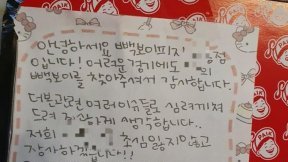 안녕하세요 빽보이피자 점
입니다! 어려운 경기에도 의
빽보이를 찾아주셔서 감사합니다.
더본관련 여러이슈들로 심려끼쳐
드려 죄송하게 생각합니다..
저희 초심 잃지않고
장사하겠습니다!!